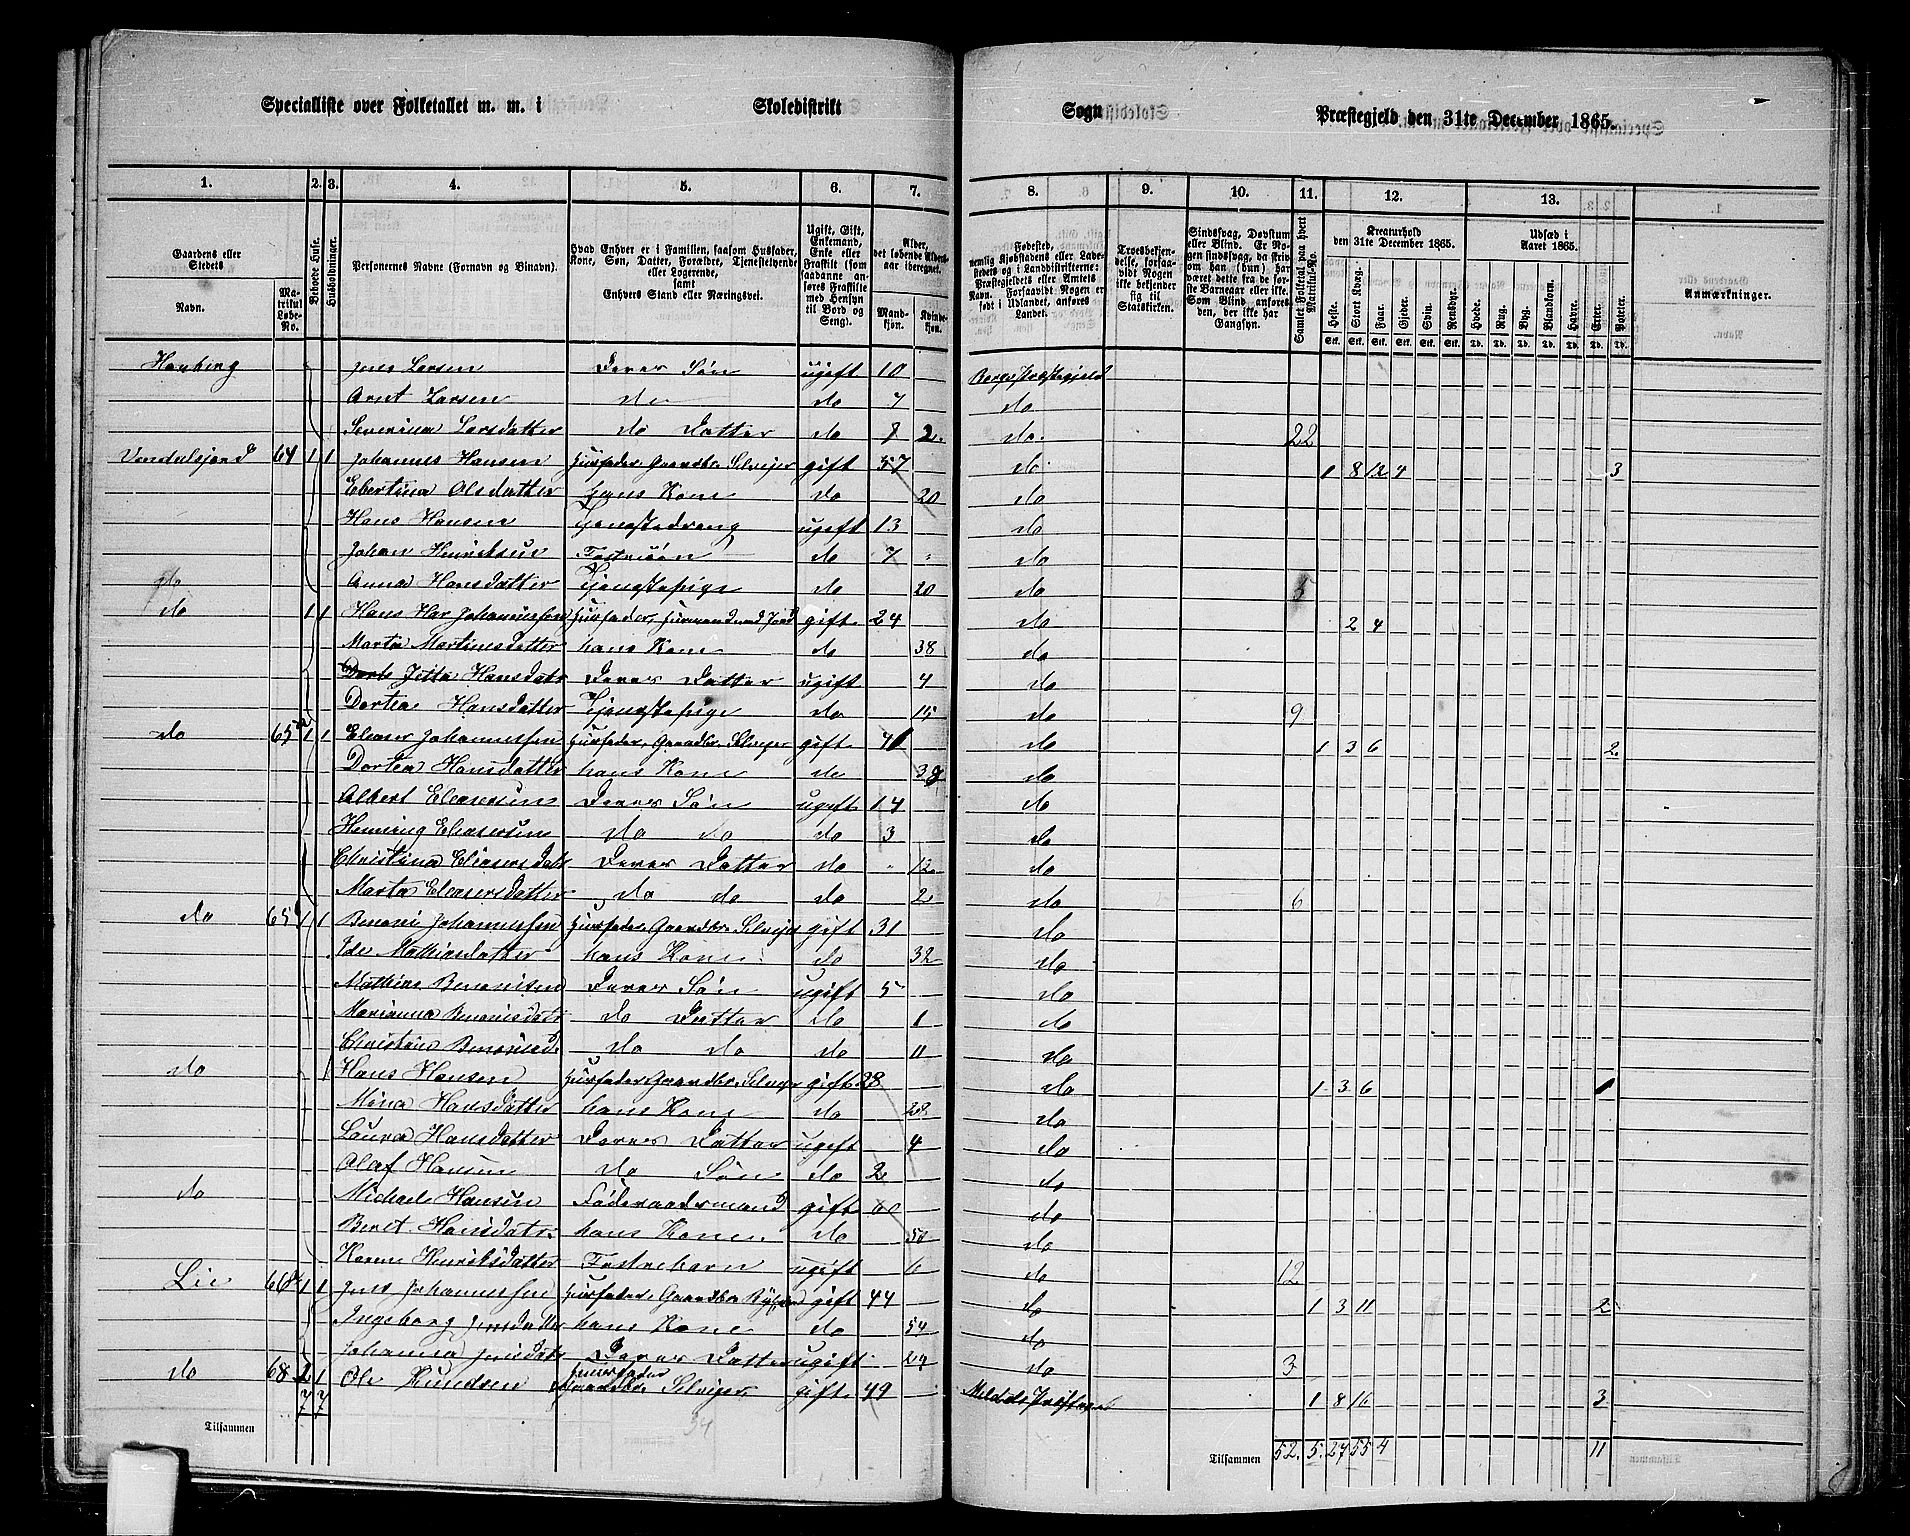 Specialliste over Folketallet m. m. i Skoledistrikt Sogn Præstegjeld den 31te December 1865.
1. 2. 3. 4. 5. 6. 7. 8. 9. 10. 11. 12. 13.
Gaardens eller Stedets Navn. Matrikul Løbe-No. Beboede Huse. Husholdninger. Personernes Navne (Fornavn og Binavn). Hvad Enhver er i Familien, saasom Husfader, Kone, Søn, Datter, Forældre, Tjenestetyende eller Logerende, samt Enhvers Stand eller Næringsvei. Ugift, Gift, Enkemand, Enke eller Fraskilt (som saadanne anføres Fraskilte med Hensyn til Bord og Seng). Alder, det løbende Alders-aar iberegnet. Mandkjøn. Kvindekjøn.
Fødested, nemlig Kjøbstadens eller Ladestedets og i Landdistrikterne: Præstegjeldets eller Amtets Navn. Forsaavidt Nogen er født i Udlandet, anføres Landet. Troesbekjendelse, forsaavidt Nogen ikke bekjender sig til Statskirken. Sindssvag, Døvstum eller Blind. Er Nogen sindssvag, da skrives om han (hun) har været dette fra de første Barneaar eller ikke. Som Blind anføres den, der ikke har Gangsyn. Samlet Folketal paa hvert Matrikul-No. Kreaturhold den 31te December 1865. Heste. Stort Kvæg. Faar. Gjeder. Svin. Rensdyr. Udsæd i Aaret 1865. Hvede. Rug. Byg. Blandkorn. Havre. Erter. Poteter. Anmærkninger.
Jens Larsen Deres Søn ugift 10
Arnt Larsen do do 7 do
Severina Larsdatter do Datter do 2 do 22
64 1 1 Johannes Hansen Husfader Gaardbr. Selveier gift 57 do 1 8 12 4 3
Ebertina Olsdatter Hans Kone do 20 do
Hans Hansen Tjenestedreng ugift 13 do
Johan Henriksen Fostersøn do 7 do
do Anna Hansdatter Tjenestepige do 20 do 5
do 1 1 Hans Johannessen Husfader, Husmand med Jord gift 24 do 2 4
Marta Martinsdatter hans Kone do 38 do
Jetta Hansdatr Deres Datter ugift 4 do
Dortea Hansdatter Tjenestepige do 15 do 9
do 65 1 1 Eleaser Johannessen Husfader, Gaardbr. Selveier gift do 1 3 6 2
Dortea Hansdatter hans Kone do do
Albert Eleasersen Deres Søn ugift 14 do
Henning Eleasersen do do do 3 do
Christina Eleasersdatr Deres Datter do 12 do
Marta Eleasersdatter do do do 2 do 6
do 65 1 1 Benoni Johannessen Husfader Gaardbr. Selveier gift 31 do
Ide Mathiasdatter hans Kone do 32 do
Mathias Benonisen Deres Søn ugift 5 do
Marianna Benonisdatr do Datter do 1 do
do do do 11 do
do Hans Hansen Husfader Gaardbr. Selveier gift 28 do 1 3 6 1
Mina Hansdatter hans Kone do 28 do
Laura Hansdatter Deres Datter ugift 4 do
Olaf Hansen do Søn do 2 do
do Michael Hansen Føderaadsmand gift 60 do
Beret Hansdatr. hans Kone do 50 do
Karen Henriksdatter Fosterbarn ugift 6 do 12
Lie 1 1 Jens Johannessen Husfader Gaardbr. gift 44 do 1 3 11 2
Ingeborg Jensdatter hans Kone do 54 do
Johanna Jensdatr Deres Datter ugift 24 do 3
do 68 2 1 Ole Knudsen Husfader Gaardbr. Selveier gift 49 1 8 16 3
7 7
Tilsammen 34
Tilsammen 52. 5. 27 55 4 11